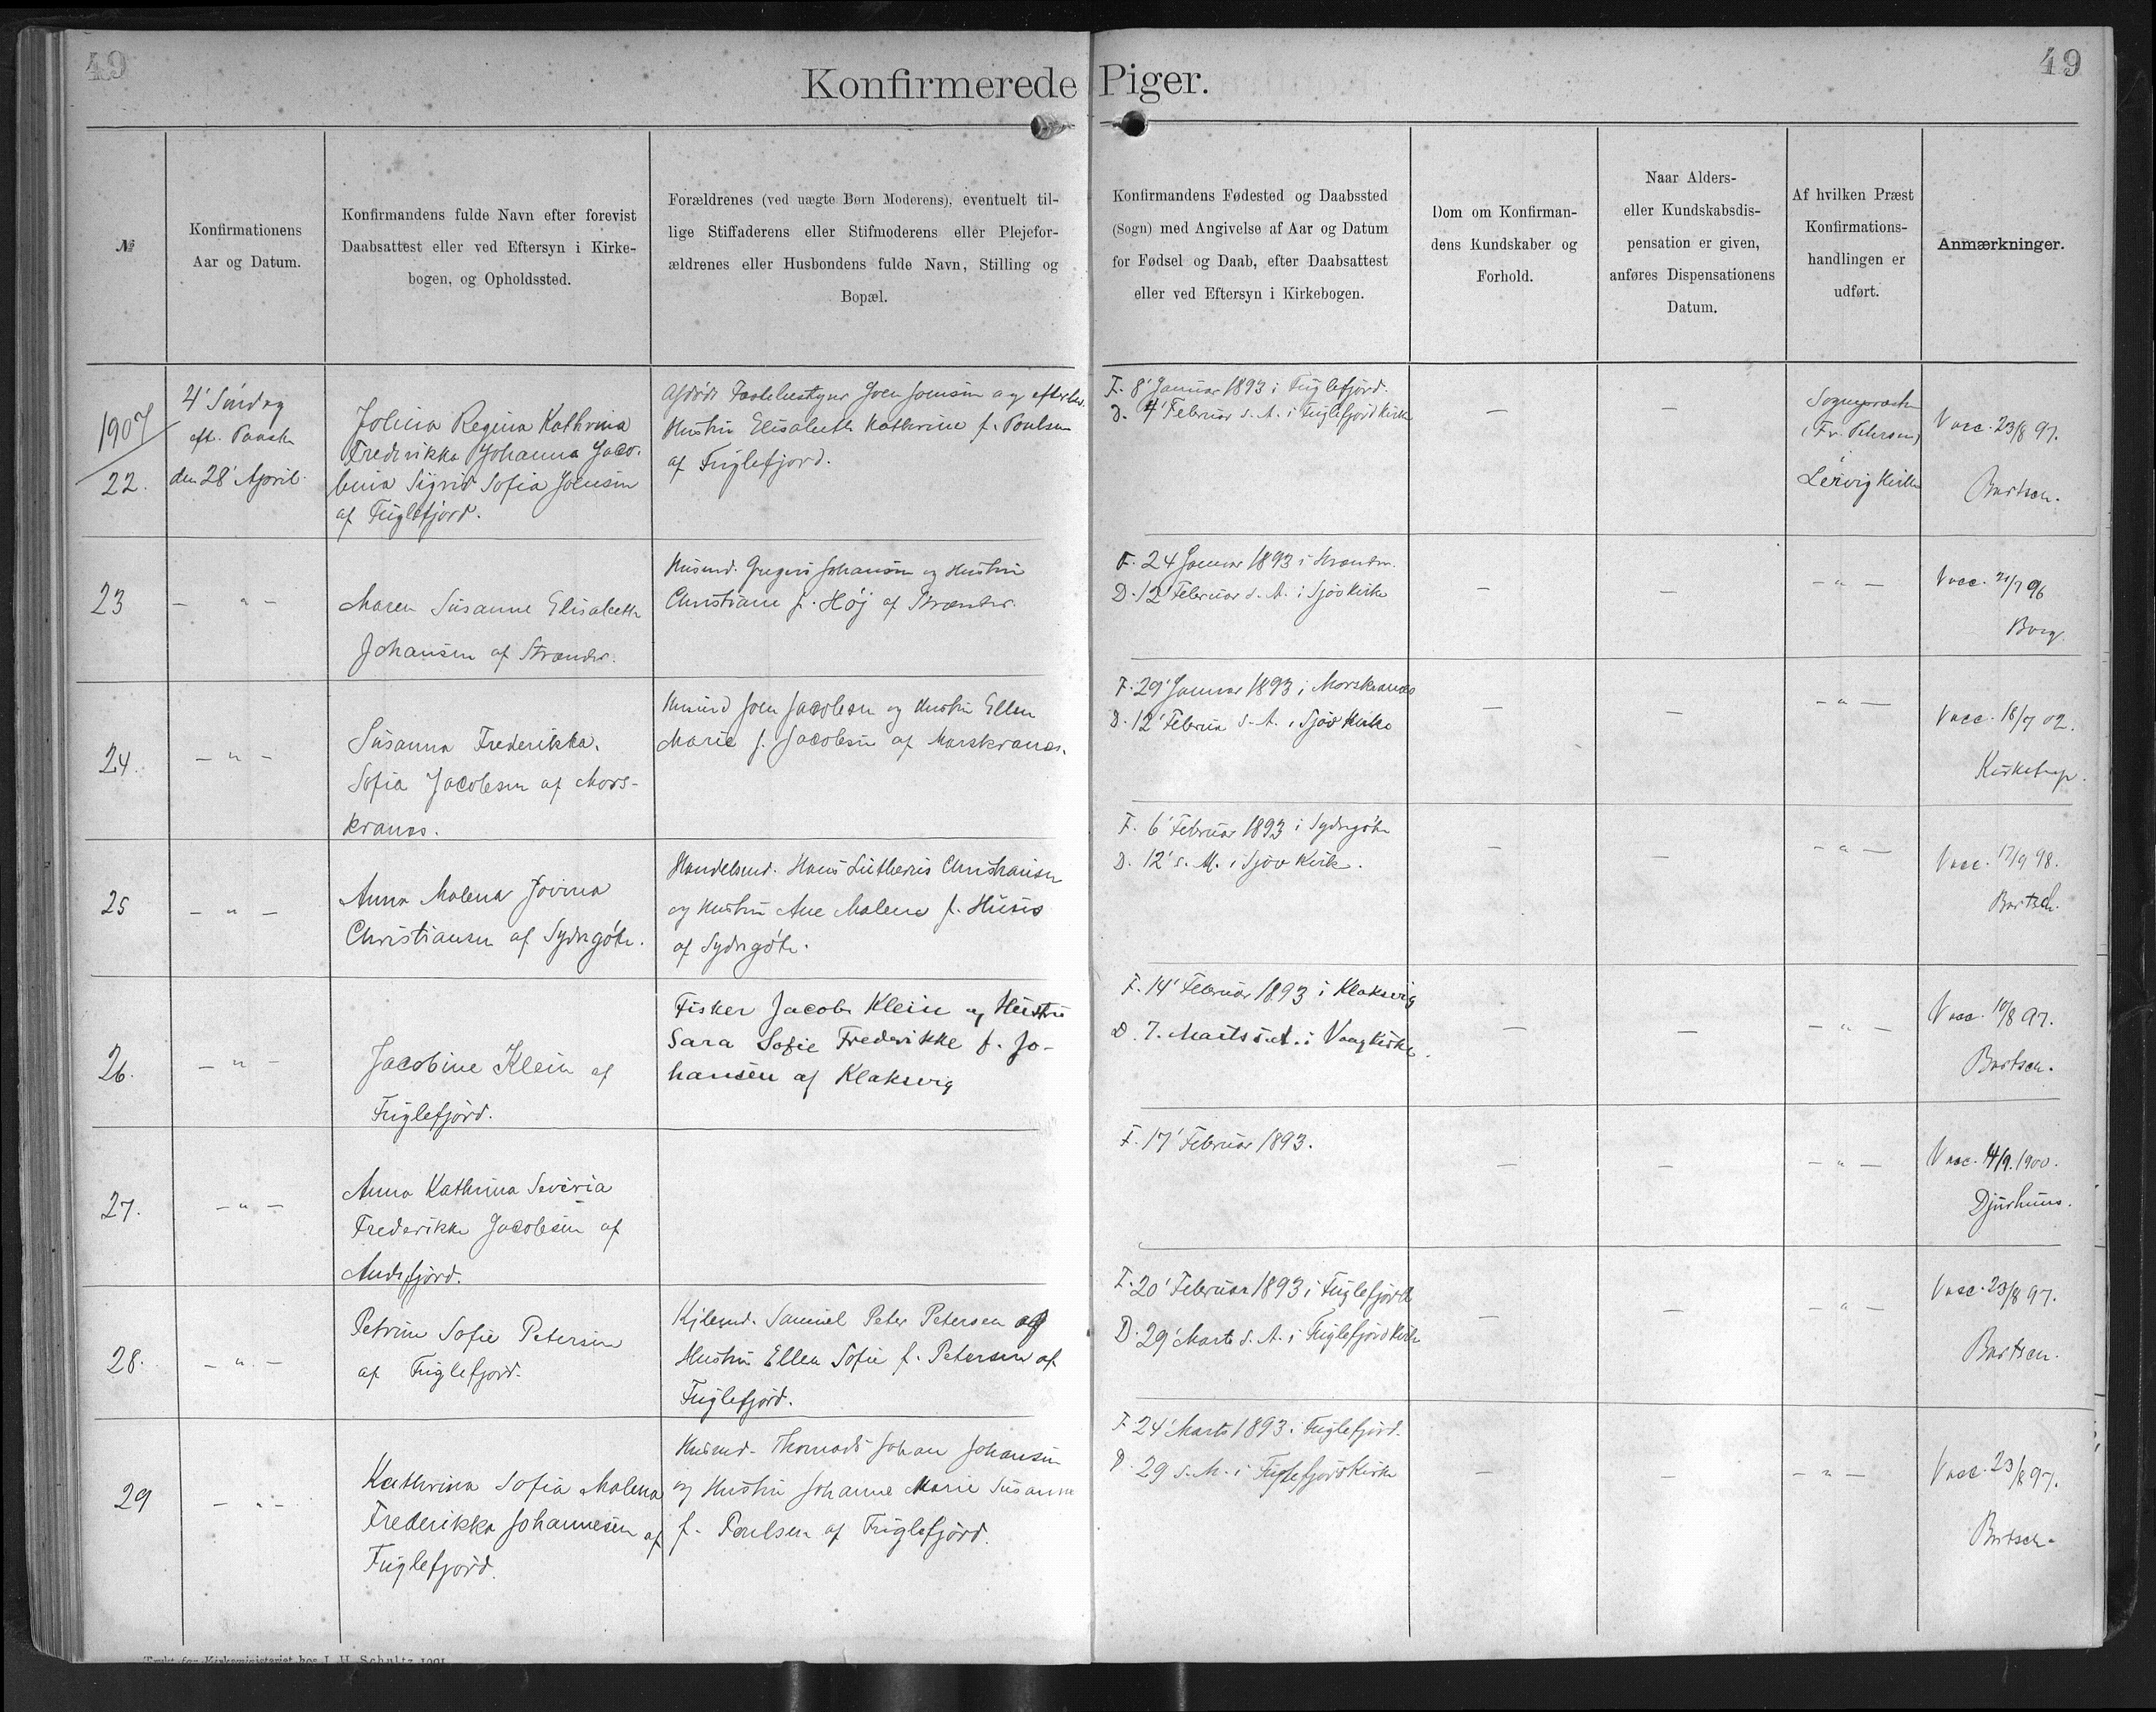 49
49
Konfirmerede Piger.
№
Konfirmationens
Aar og Datum.
Konfirmandens fulde Navn efter forevist
Daabsattest eller ved Eftersyn i Kirke-
bogen, og Opholdssted.
Forældrenes (ved uægte Børn Moderens), eventuelt til-
lige Stiffaderens eller Stifmoderens eller Plejefor-
ældrenes eller Husbondens fulde Navn, Stilling og
Bopæl.
Konfirmandens Fødested og Daabssted
(Sogn) med Angivelse af Aar og Datum
for Fødsel og Daab, efter Daabsattest
eller ved Eftersyn i Kirkebogen.
Dom om Konfirman-
dens Kundskaber og
Forhold.
Naar Alders-
eller Kundskabsdis-
pensation er given,
anføres Dispensationens
Datum.
Af hvilken Præst
Konfirmations-
handlingen er
udført.
Anmærkninger.
1907
22.
4' Søndag
eft. Paaske
den 28' April.
Jolina Regina Kathrina
Frederikka Johanna Jaco-
bina Sigrid Sofia Joensen
af Fuglefjord.
Afdøde Joen Joensen og
Hustru Elisabeth Kathrine f. Poulsen
af Fuglefjord.
F. 8' Januar 1893 i Fuglefjord.
D. 4' Februar s. A. i Fuglefjord Kirke
—
—
Sognepræsten
(Fr. Petersen)
Lervig Kirke
Vacc. 23/8 97.
Bartsch.
23
— " —
Maren Susanne Elisabeth
Johansen af Strænder.
Husmd. Gregers Johansen og Hustru
Christiane f. Høj af Strænder.
F. 24 Januar 1893 i Strænder.
D. 12' Februar s. A. i Sjov Kirke
—
—
— " —
Vacc. 96
Borg.
24.
— " —
Susanna Frederikka
Sofia Jacobsen af Mors-
kranes.
Husmd Joen Jacobsen og Hustru Ellen
Marie f. Jacobsen af Morskranes.
F. 29' Januar 1893 i Morskranes
D. 12' Februar s. A. i Sjov Kirke
—
—
— " —
Vacc. 18/7 02.
Kirketerp.
25
— " —
Anna Malena Jovina
Christiansen af Sydrgöte.
Handelsmd. Hans Lutherus Christiansen
og Hustru Ane Malene f. Husis
af Sydrgöte.
F. 6' Februar 1893 i Sydrgöte
D. 12' s. M. i Sjov Kirke.
—
—
— " —
Vacc. 17/9 98.
Bartsch.
26.
— " —
Jacobine Klein af
Fuglefjord.
Fisker Jacob Klein og Hustru
Sara Sofie Frederikke f. Jo-
hansen af Klaksvig
F. 14' Februar 1893 i Klaksvig
D. 7. Marts s. A. i Vaag Kirke.
—
—
— " —
Vacc. 10/8 97.
Bartsch.
27.
— " —
Anna Kathrina Severia
Frederikke Jacobsen af
Andefjord.
F. 17' Februar 1893.
—
—
— " —
Vacc. 14/9. 1900.
Djurhuus.
28.
— " —
Petrine Sofie Petersen
af Fuglefjord.
Samuel Peter Petersen og
Hustru Ellen Sofie f. Petersen af
Fuglefjord.
F. 20' Februar 1893 i Fuglefjord
D. 29' Marts s. A. i Fuglefjord Kirke
—
—
— " —
Vacc. 23/8 97.
Bartsch.
29
— " —
Kathrina Sofia Malena
Frederikka Johannesen af
Fuglefjord.
Husmd. Thomas Johan Johansen
og Hustru Johanne Marie Susanne
f. Poulsen af Fuglefjord.
F. 24' Marts 1893 i Fuglefjord.
D. 29 s. M. i Fuglefjord Kirke
—
—
— " —
Vacc. 23/8 97.
Bartsch.
Trykt for Kirkeministeriet hos J. H. Schultz 1901